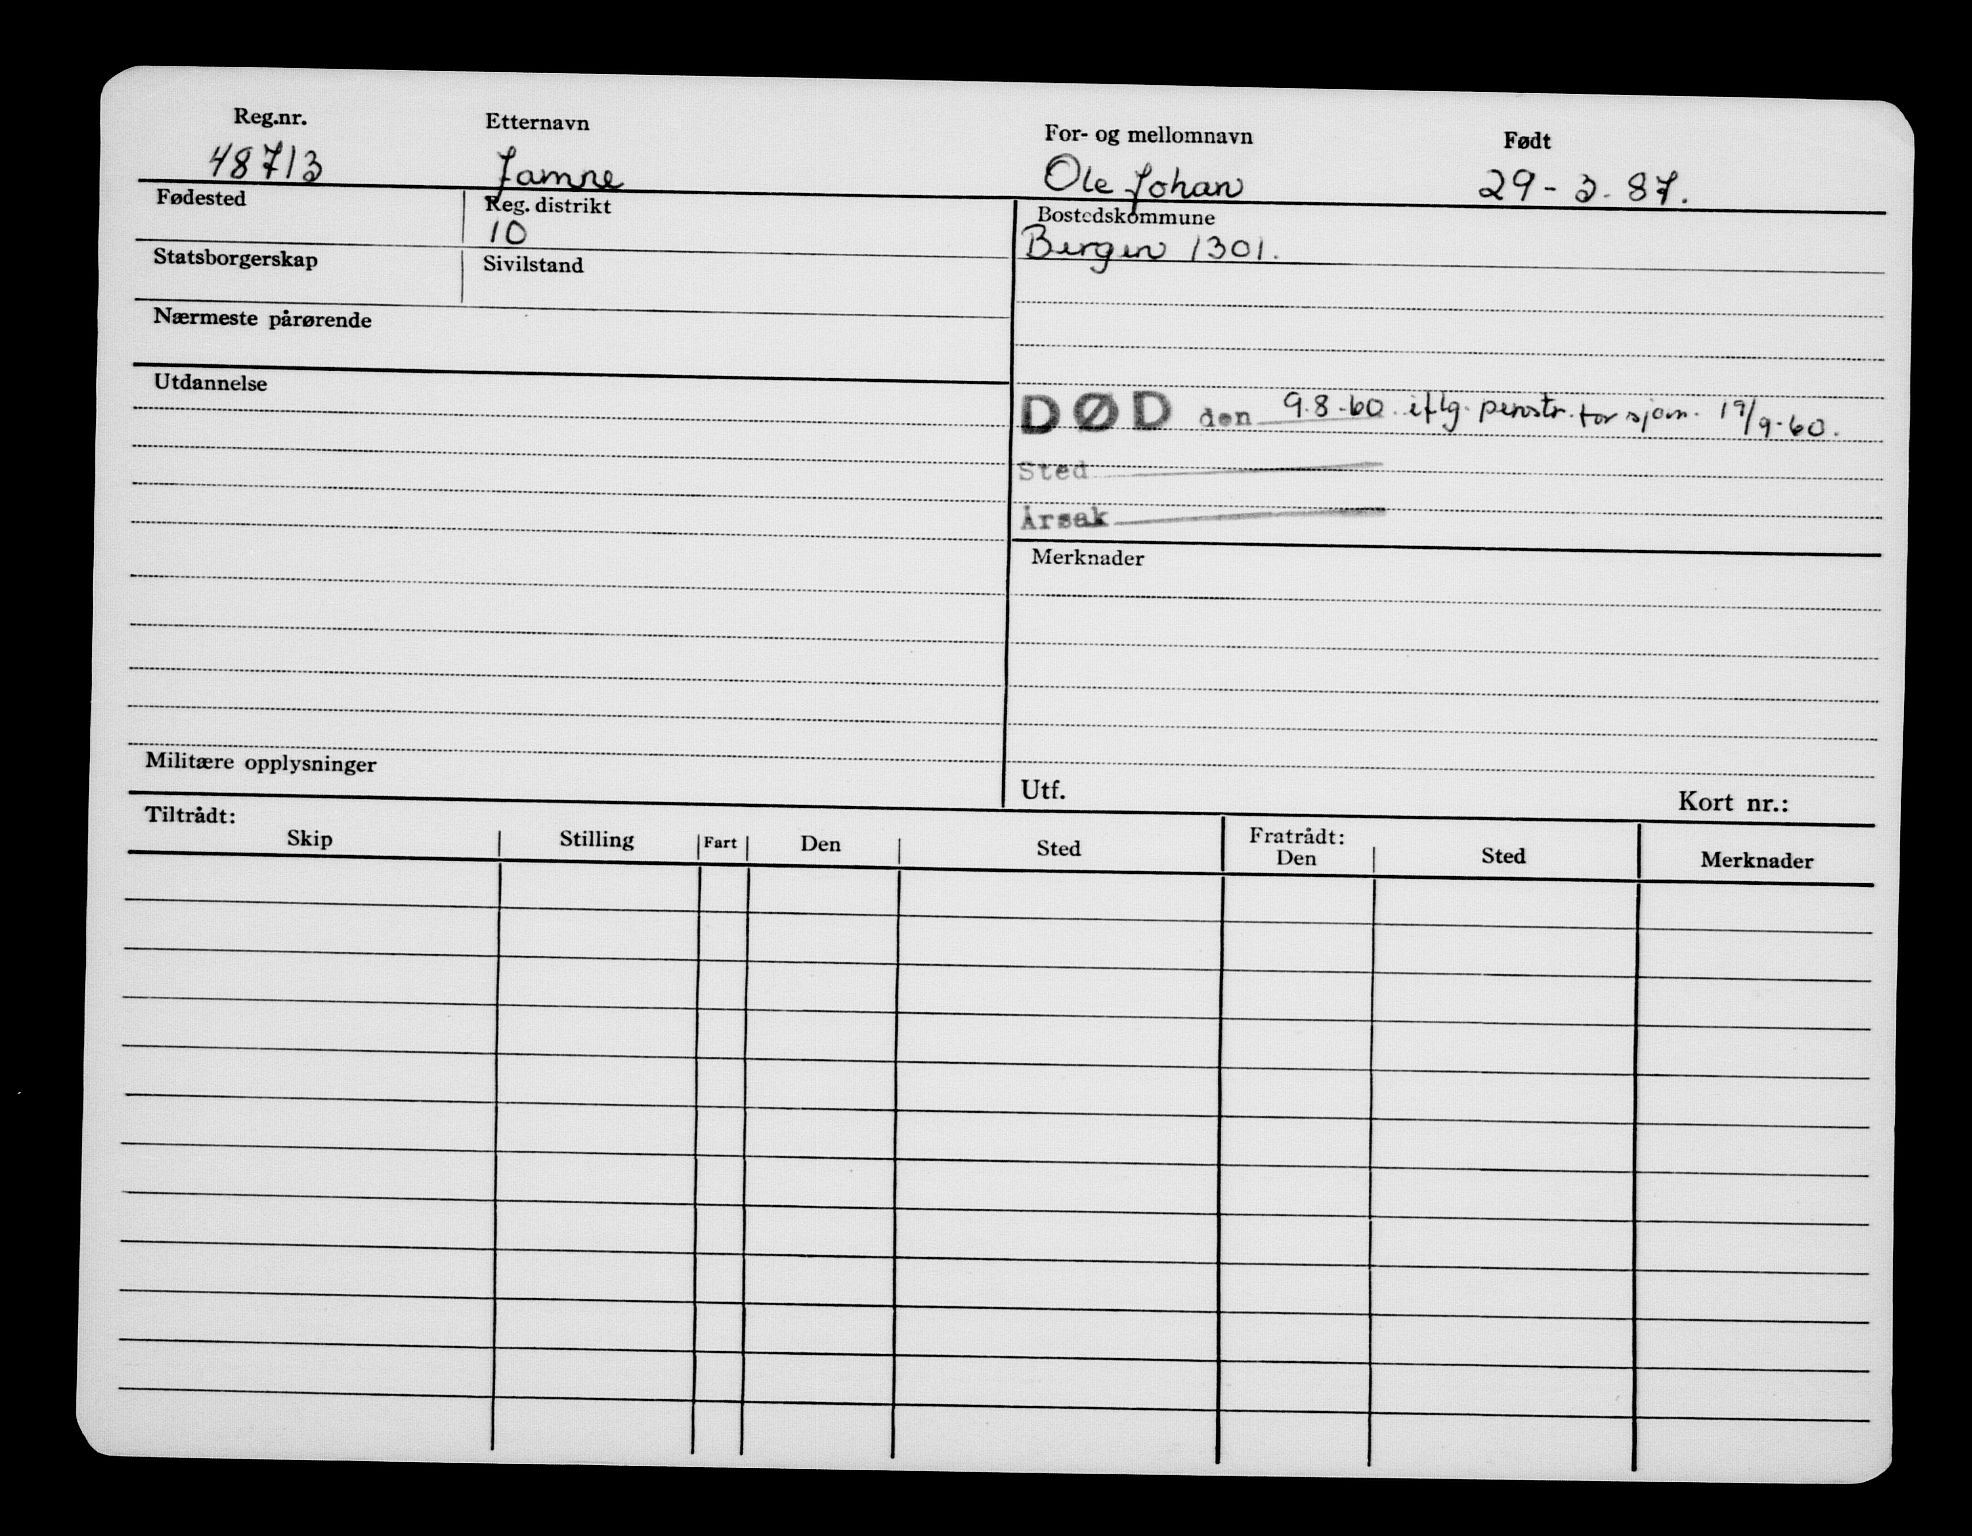 Reg.nr. Etternavn For- og mellomnavn Født
48713 Jamne Ole Johan 29-3-87.
Fødested Reg. distrikt Bostedskommune
10 Bergen 1301.
Statsborgerskap Sivilstand
Nærmeste pårørende
Utdannelse
DØD den 9.8-60 iflg. penstr. for sjøm. 19/9-60.
Sted
Årsak
Merknader
Militære opplysninger
Utf. Kort nr.:
Tiltrådt: Fratrådt:
Skip Stilling Fart Den Sted Den Sted Merknader